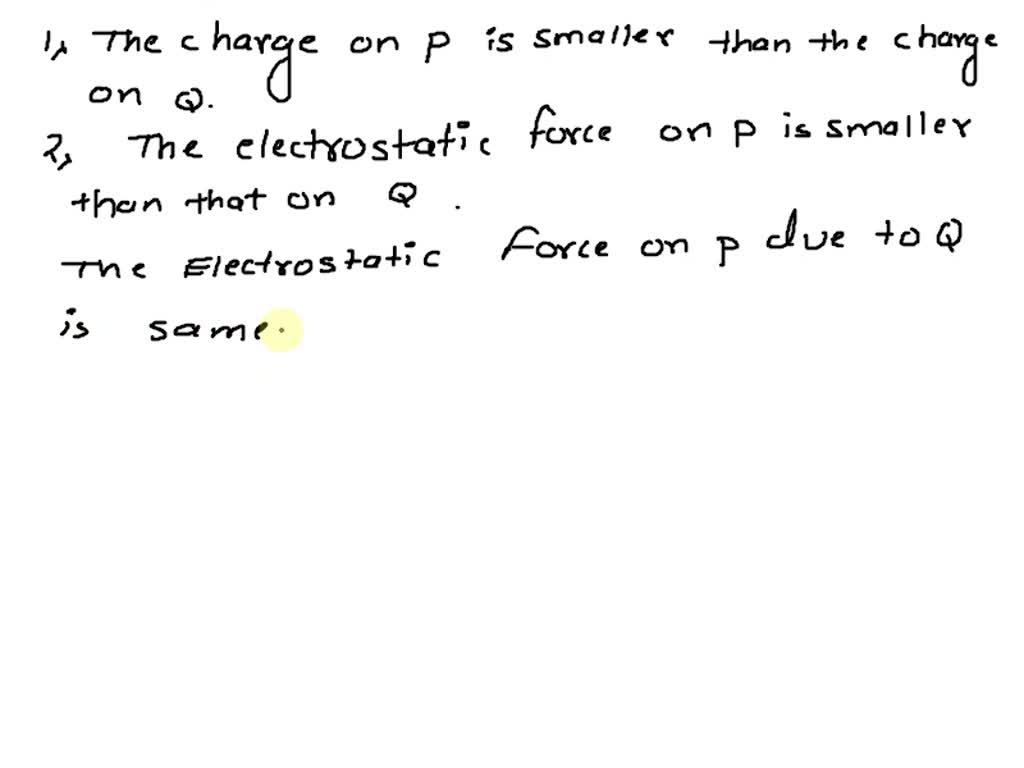 1, The charge on P is smaller than the charge
on Q.
2, The electrostatic force on P is smaller
than that on Q .
The Electrostatic Force on P due to Q
is same.